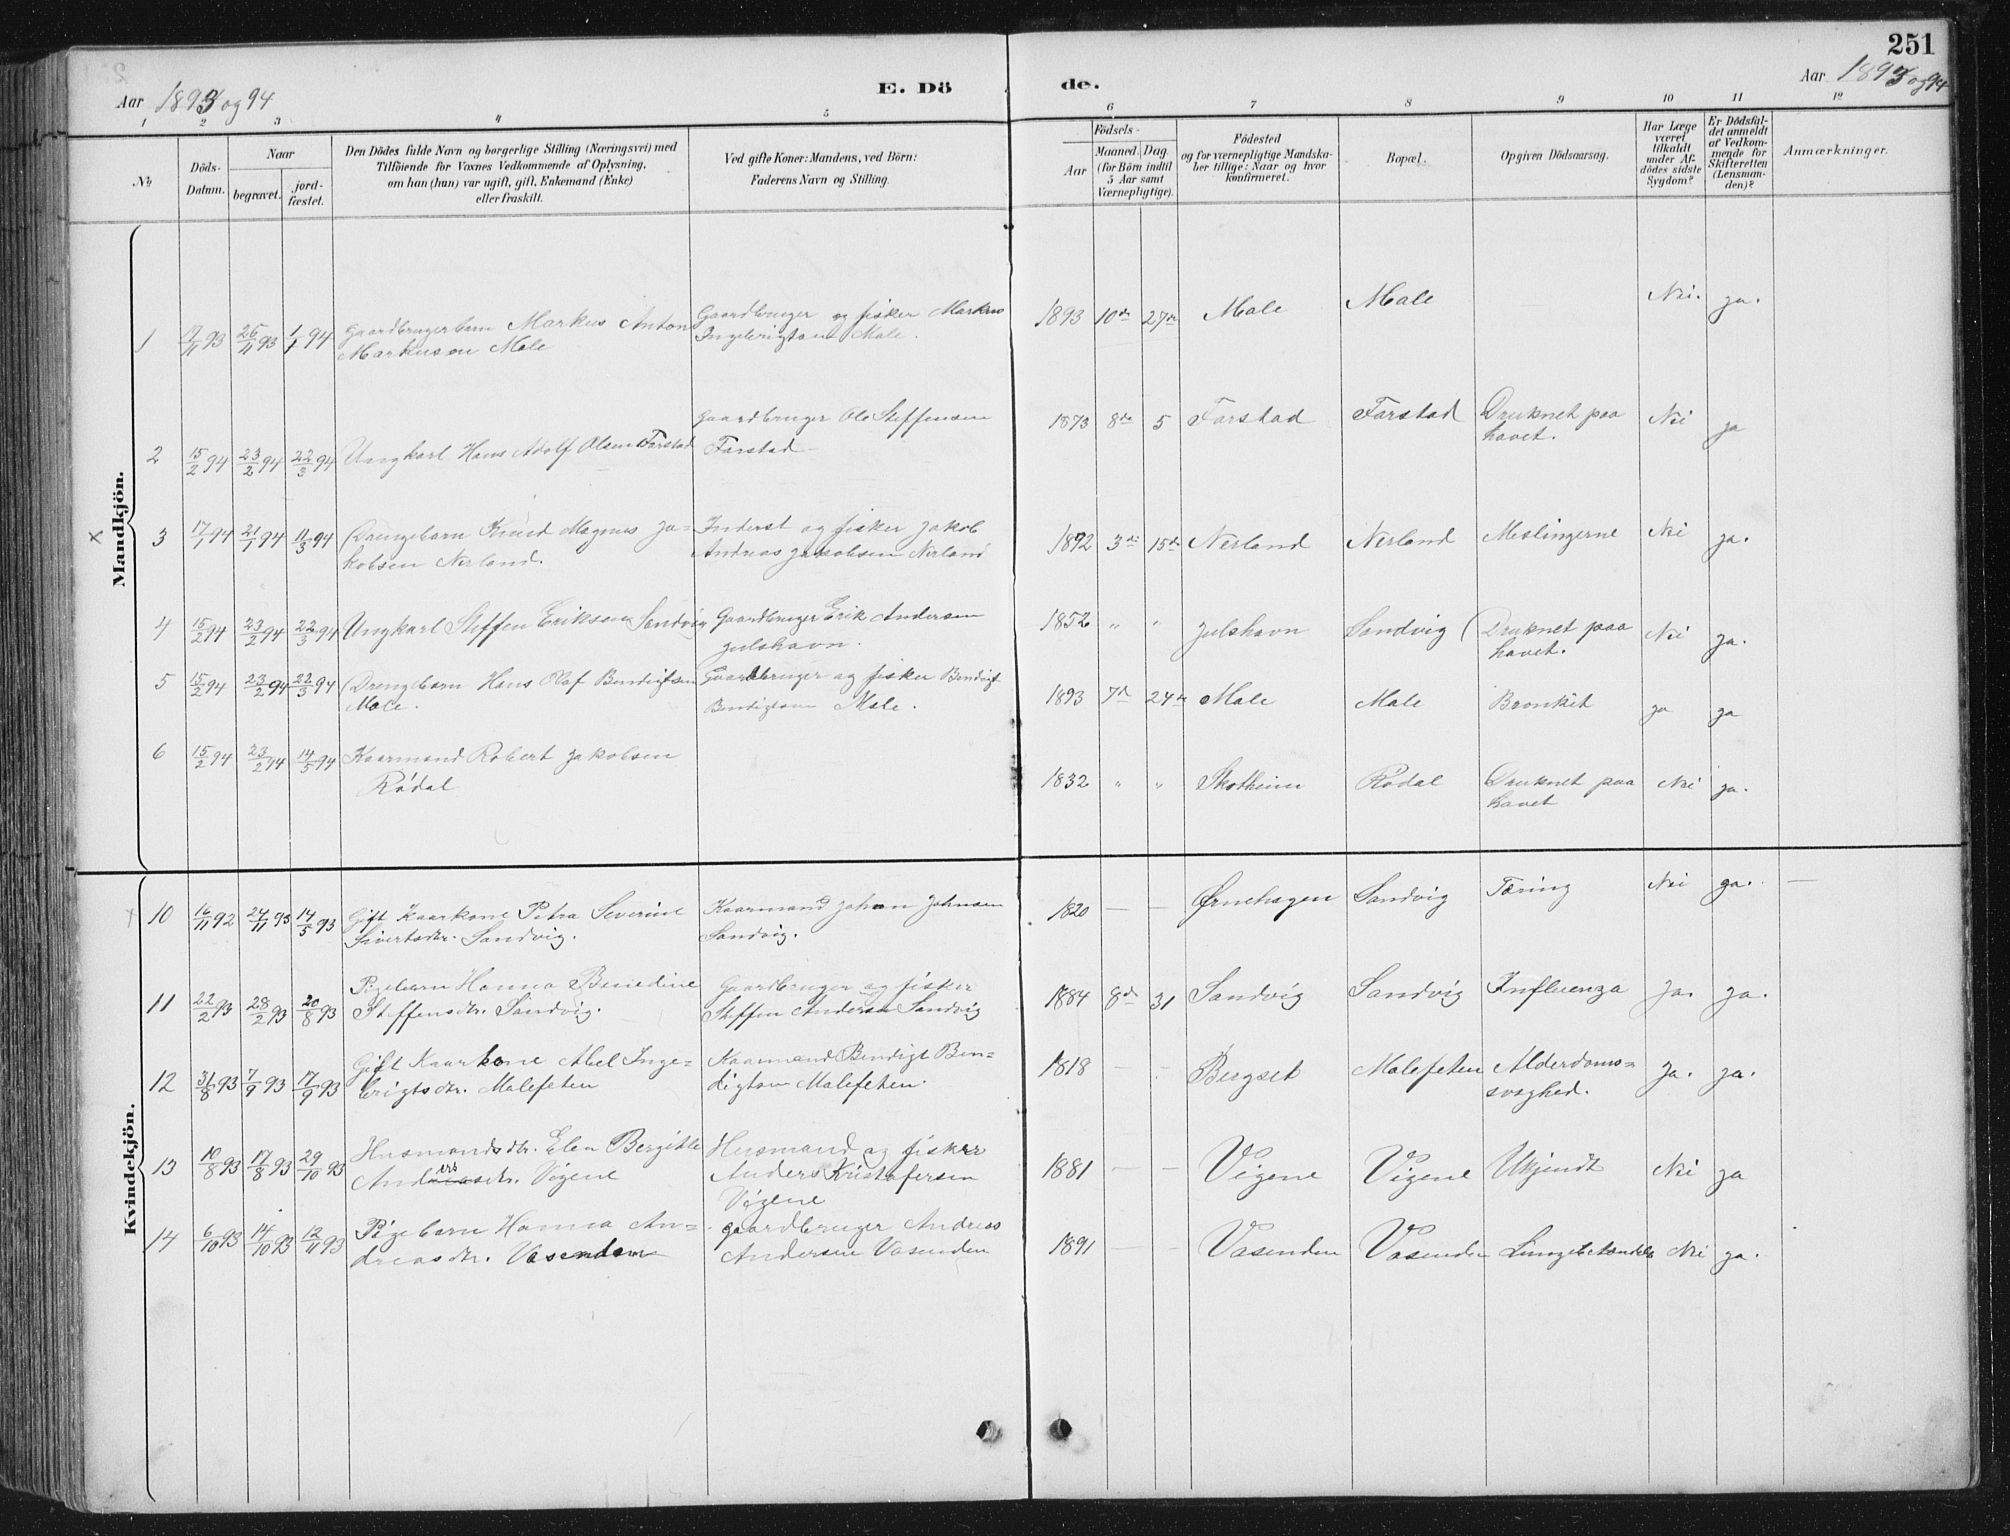 251
Aar 1893 og 94
E. Dö
de.
Aar 1893 og 94
1 2 3 4 5 6 7 8 9 10 11 12
No
Döds-
Datum.
Naar
begravet.
jord-
fæstet.
Den Dödes fulde Navn og borgerlige Stilling (Næringsvei) med
Tilföiende for Voxnes Vedkommende af Oplysning,
om han (hun) var ugift, gift, Enkemand (Enke)
eller fraskilt.
Ved gifte Koner: Mandens, ved Börn:
Faderens Navn og Stilling.
Födsels-
Aar
Maaned. Dag.
(for Börn indtil
5 Aar samt
Værnepligtige).
Födested
og for værnepligtige Mandska-
ber tillige: Naar og hvor
konfirmeret.
Bopæl.
Opgiven Dödsaarsag.
Har Læge
været
tilkaldt
under Af-
dödes sidste
Sygdom?
Er Dödsfal-
det anmeldt
af Vedkom-
mende for
Skifteretten
(Lensman-
den)?
Anmærkninger.
Mandkjön.
1 7/11 93 26/11 93 1/1 94 Gaardbrugerbarn Markus Anton
Markusen Male
Gaardbruger og fisker Markus
Ingebrigtsen Male.
1893 10de 27de Male Male Nei. ja.
2 15/2 94 23/2 94 22/3 94 Ungkarl Hans Adolf Olsen Farstad
Gaardbruger Ole Steffensen
Farstad
1873 8de 5 Farstad Farstad Druknet paa
havet. Nei ja
x 3 17/1 94 21/1 94 11/3 94 Drengebarn Knud Magnus Ja-
kobsen Nerland.
Inderst og fisker Jakob
Andreas Jakobsen Nerland
1892 3de 15de Nerland Nerland Meslingerne Nei ja.
4 15/2 94 23/2 94 22/3 94 Ungkarl Steffen Eriksen Sandvig
Gaardbruger Erik Andersen
Julshavn.
1852 " " Julshavn Sandvig Druknet paa
havet. Nei ja.
5 15/2 94 23/2 94 22/3 94 Drengebarn Hans Olaf Bendigtsen
Male.
Gaardbruger og fisker Bendigt
Bendigtsen Male.
1893 7de 24de Male Male Bronkit ja ja
6 15/2 94 23/2 94 14/5 94 Kaarmand Robert Jakobsen
Rødal
1832 " " Skotheim Rødal Druknet paa
havet Nei ja.
Kvindekjön.
10 16/11 92 24/11 93 14/5 93 Gift Kaarkone Petra Severine
Sivertsdtr. Sandvig.
Kaarmand Johan Johnsen
Sandvig.
1820 — — Ørnehagen Sandvig Tæring Nei ja. —
11 22/2 93 28/2 93 20/8 93 Pigebarn Hanna Benedine
Steffensdtr. Sandvig.
Gaardbruger og fisker
Steffen Andersen Sandvig
1884 8de 31 Sandvig Sandvig Influenza Ja. ja.
12 31/8 93 7/9 93 17/9 93 Gift Kaarkone Abel Inge-
brigtsdtr. Malefeten
Kaarmand Bendigt Ben-
digtsen Malefeten.
1818 — — Bergset Malefeten Alderdoms-
svaghed. Ja. ja.
13 10/8 93 17/8 93 29/10 93 Husmandsdtr. Elen Bergitte
Andersdtr. Vigene
Husmand og fisker
Anders Kristofersen
Vigene
1881 — — Vigene Vigene Ukjendt Nei ja
14 6/10 93 14/10 93 12/11 93 Pigebarn Hanna An-
dreasdtr. Vasenden
gaardbruger Andreas
Andersen Vasenden
1891 — Vasenden Vasenden Lungebetændelse Nei ja.